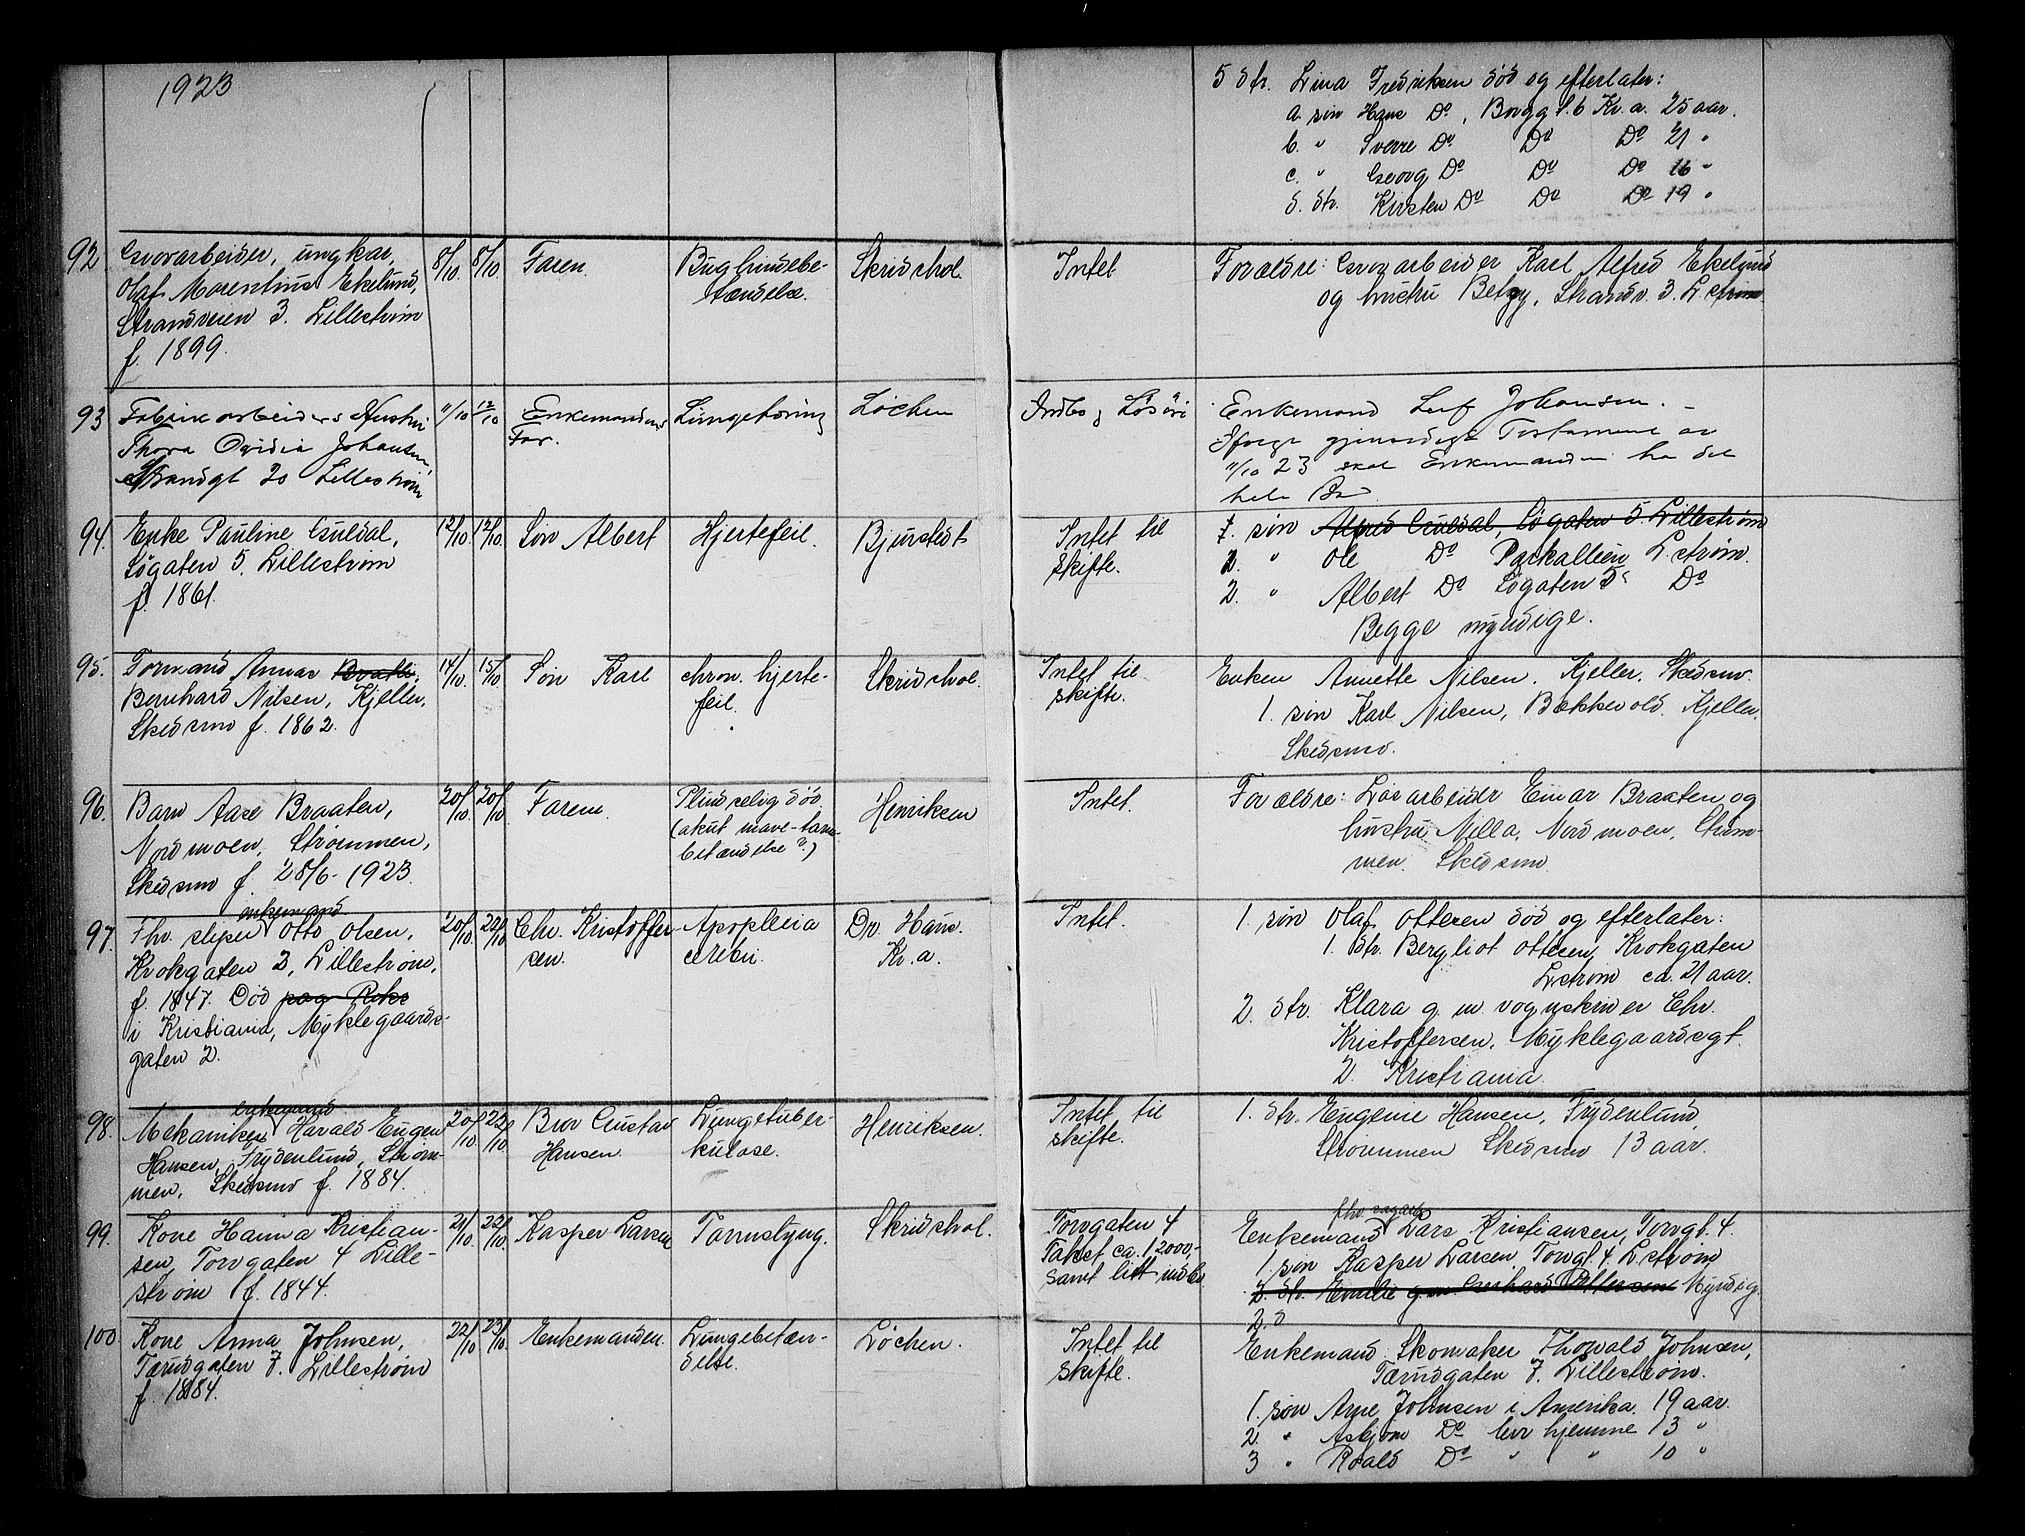 1923
5 dtr. Lina Fredriksen død og efterlater:
a. søn Hans Do, Borgg 1.6 Kr.a. 25 aar.
b. " Sverre Do Do Do 21 "
c. " Georg Do Do Do 16 "
d. dtr. Kirsten Do Do Do 19 "
92 Grovarbeider, ungkar,
Olaf Marentius Ekelund,
Strandveien 3. Lillestrøm
f. 1899.
8/10 8/10 Faren.
Bughindebe-
tændelse.
Skridshol.
Intet
Forældre: Grovarbeider Karl Alfred Ekelund
og hustru Betzy, Strandv. 3. L.strøm
93 Fabrikarbeiders Hustru
Thora Ovidia Johansen,
Strandgt 20 Lillestrøm
11/10 12/10 Enkemandens
Far.
Lungetæring
Løchen
Indbo & Løsøre
Enkemand Leif Johansen. -
Ifølge gjensidigt Testament av
11/10 23 skal Enkemanden ha det
hele Bo
94. Enke Pauline Guldal,
Søgaten 5. Lillestrøm
f. 1861.
12/10 12/10. Søn Albert
Hjertefeil.
Bjurstedt
Intet til
skifte.
1. søn Alfred Guldal, Søgaten 5 Lillestrøm
1. " Ole Do Parkalleen L.strøm.
2. " Albert Do Søgaten 5 Do
Begge myndige.
95. Formand Annar
Bernhard Nilsen, Kjeller,
Skedsmo f. 1862.
14/10. 15/10. Søn Karl
chron. hjerte-
feil.
Skridshol.
Intet til
skifte.
Enken Annette Nilsen. Kjeller. Skedsmo.
1. søn Karl Nilsen, Bekkevold. Kjeller.
Skedsmo.
96. Barn Aase Braaten,
Nordmoen, Strømmen,
Skedsmo f. 28/6-1923.
20/10 20/10. Faren.
Pludselig død
(akut mave-tarm-
betændelse?)
Henriksen
Intet.
Forældre: Løsarbeider Einar Braaten og
hustru Milla, Nordmoen, Strøm-
men. Skedsmo.
enkemand
97. Fhv. sliper Otto Olsen,
Krokgaten 2, Lillestrøm,
f. 1847. Død paa
i Kristiania, Myklegaards-
gaten 2.
20/10 20/10. Chr. Kristoffer-
sen.
Apoplexia
cerebri.
Dr. Hans.
Kr.a.
Intet.
1. søn Olaf Ottesen død og efterlater:
1. dtr. Bergliot Ottesen, Krokgaten
L.strøm ca. 21 aar.
2. dtr. Klara g. m. vognskriver Chr.
Kristoffersen. Myklegaardsgt.
2. Kristiania
enkemand
98. Mekaniker Harald Eugen
Hansen, Frydenlund, Strøm-
men, Skedsmo f. 1884.
20/10 22/10. Bror Gustav
Hansen.
Lungetuber-
kulose.
Henriksen.
Intet til
skifte.
1. dtr. Eugenie Hansen, Frydenlund,
Strømmen Skedsmo 13 aar.
99. Kone Hanna Kristian-
sen, Torvgaten 4 Lille-
strøm f. 1844.
21/10. 22/10. Kasper Larsen
Tarmslyng.
Skridshol.
Torvgaten 4
Takst ca. 12000,-
samt litt indbo
fhv. sagarb.
Enkemand Lars Kristiansen, Torvgt. 4.
1. søn Kasper Larsen Torvgt. 4. L.strøm
2. dtr. Emilie g.m. Gerhard Pettersen Myndig.
2. d
100 Kone Anna Johnsen,
Tærudgaten 7. Lillestrøm
f. 1884.
22/10. 23/10. Enkemanden.
Lungebetæn-
delse.
Løchen.
Intet til
skifte.
Enkemand: Skomaker Thorvald Johnsen,
Tærudgaten 7. Lillestrøm.
1. søn Arne Johnsen i Amerika. 19 aar.
2. " Asbjørn Do lever hjemme 13 "
3 " Roald Do " " 10 "